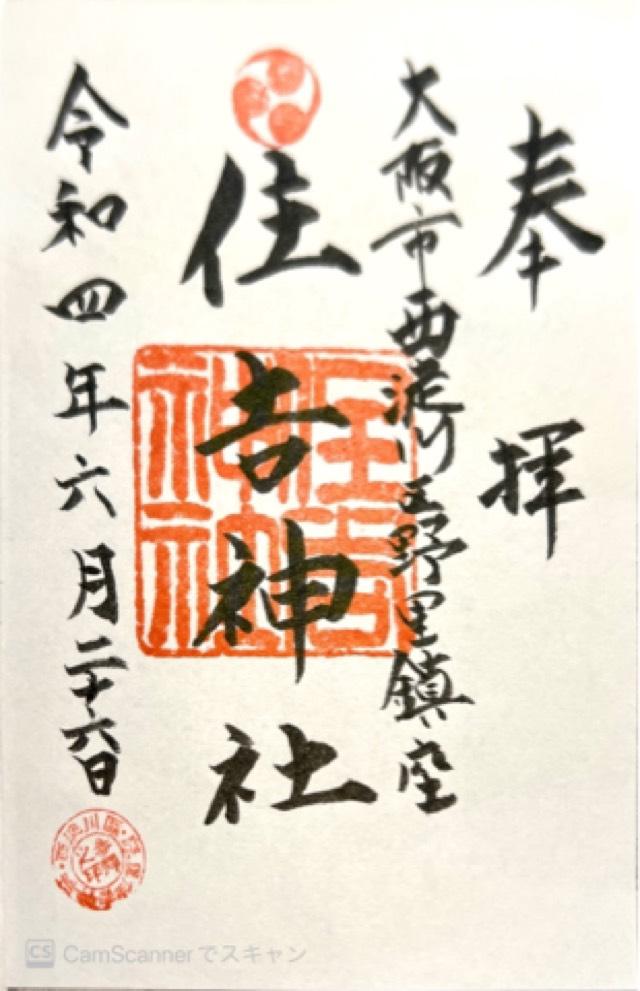 奉拝
大阪市西淀川区野里鎮座
住吉神社
令和四年六月二十六日
住吉神社
CS CamScannerでスキャン